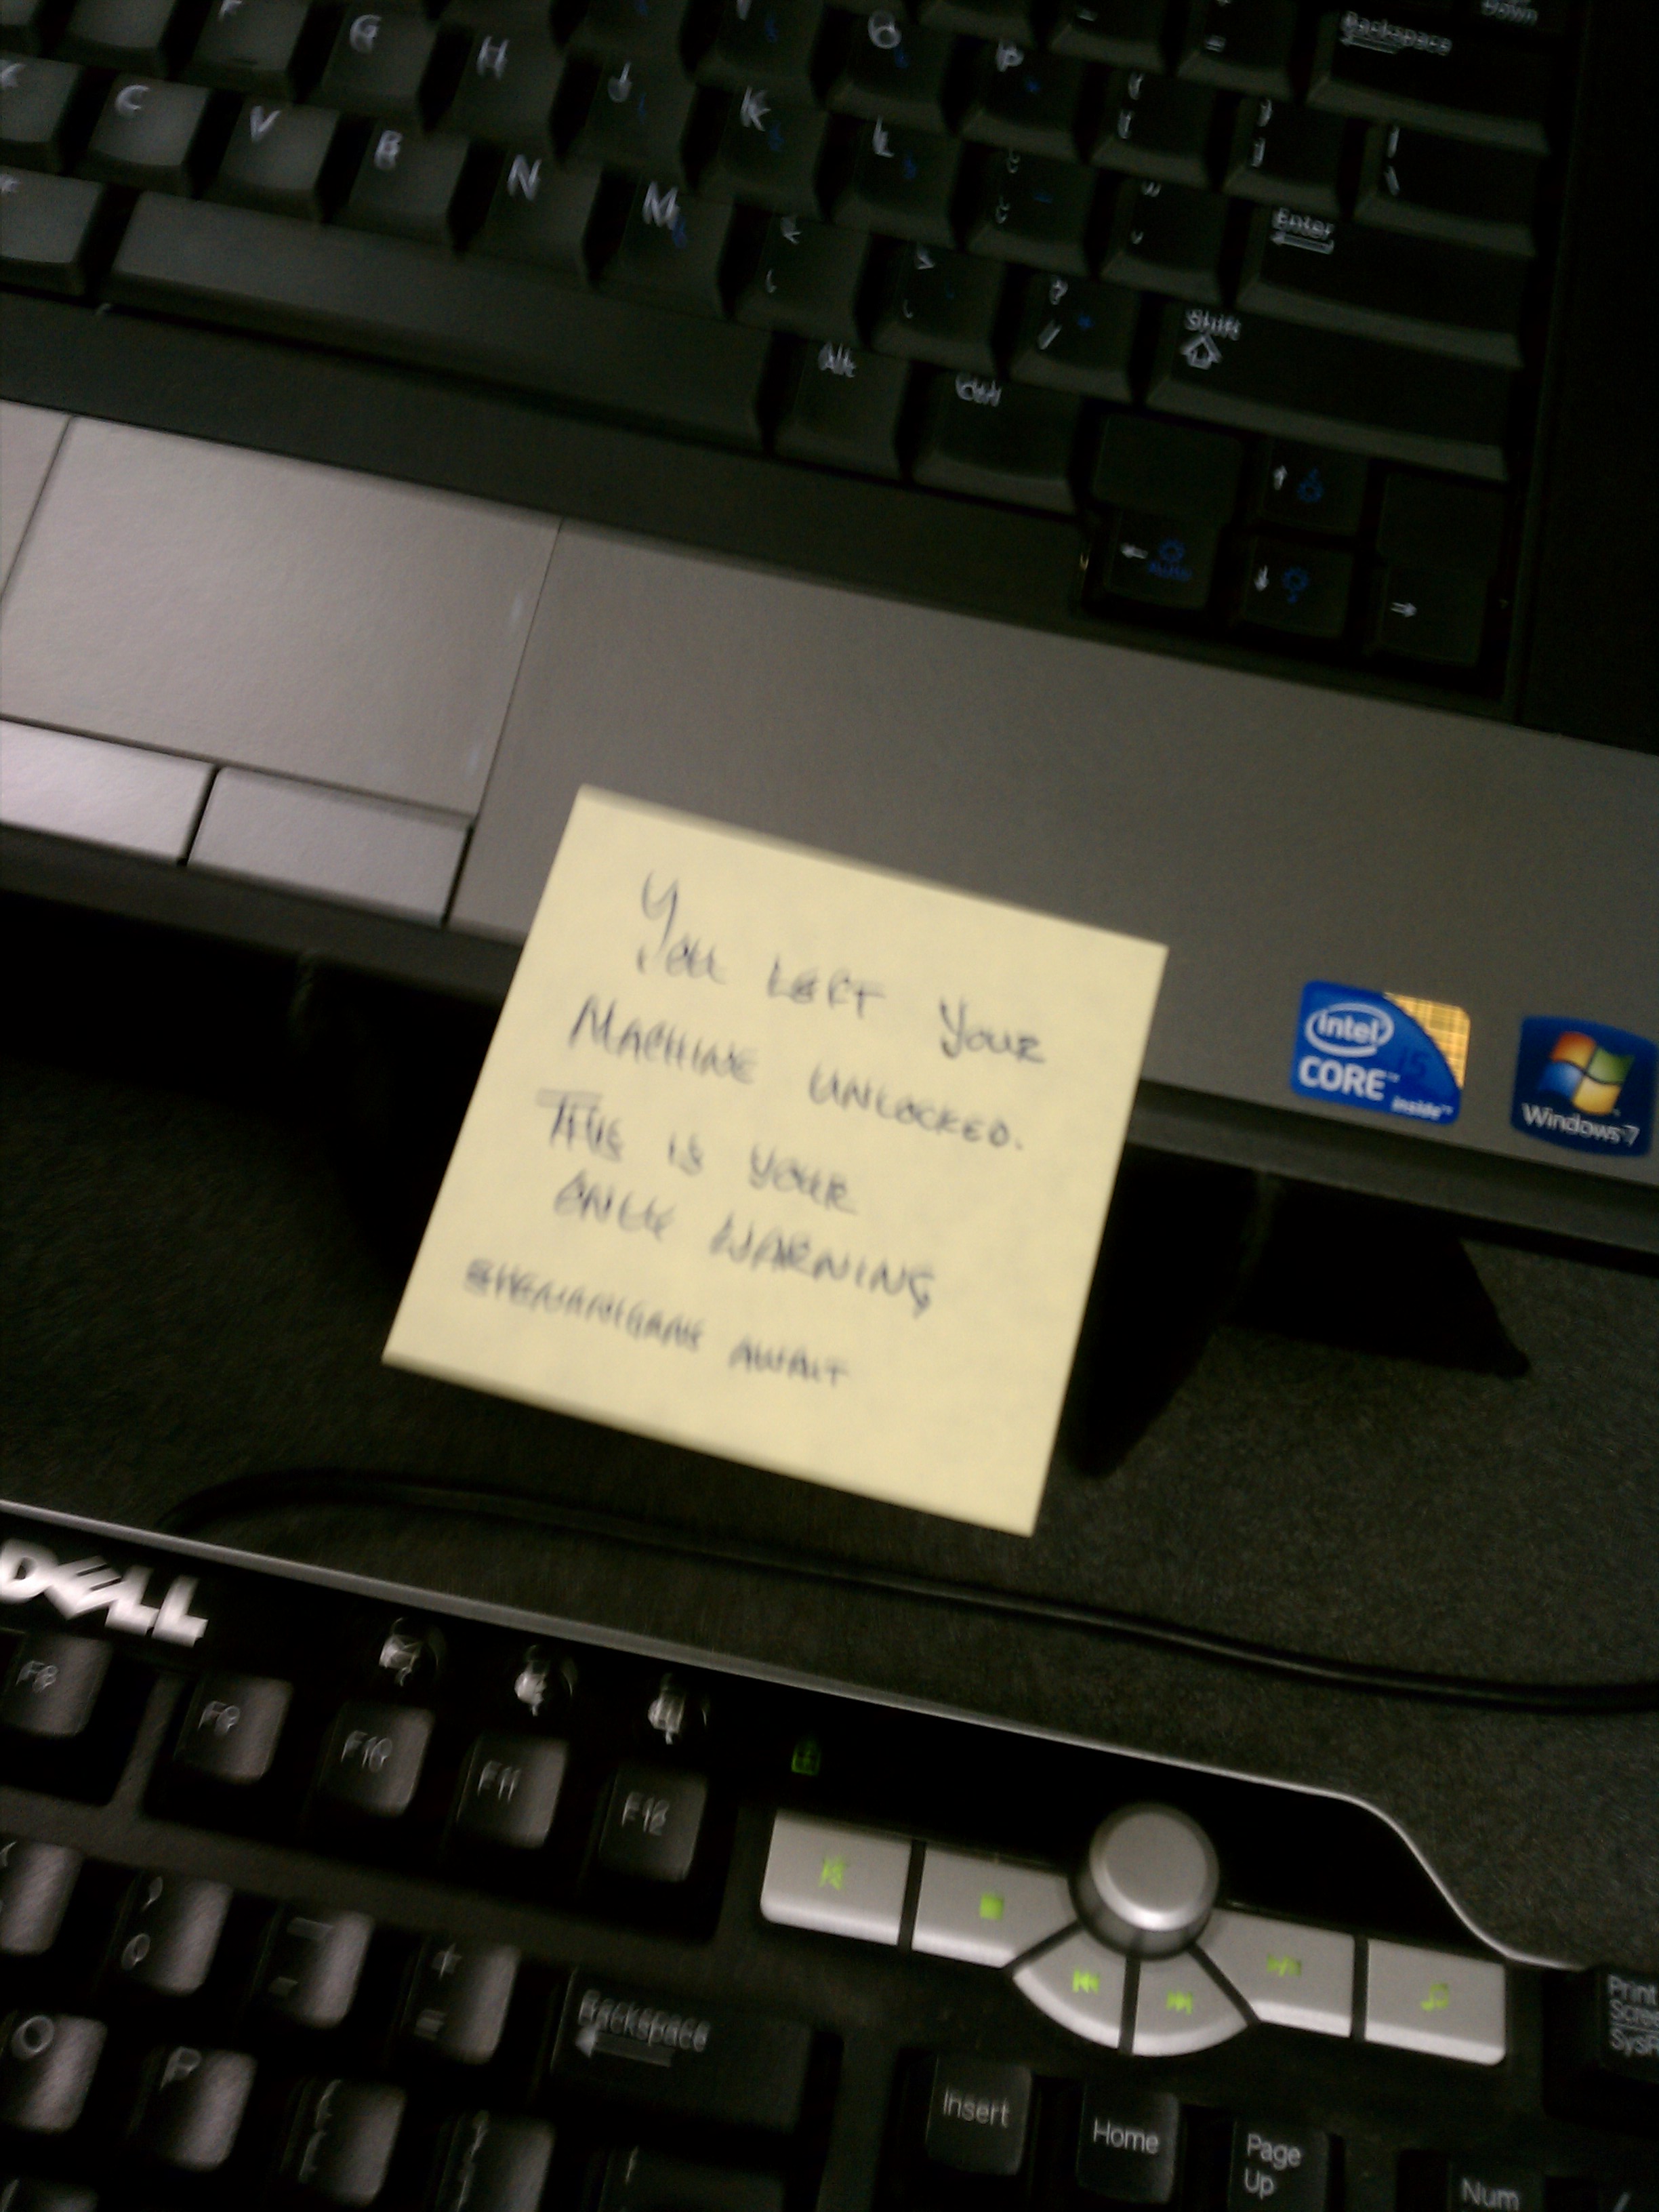 Down
Backspace
F
G
H
J
K
L
O
P
C
V
B
N
M
Enter
Shift
Alt
Ctrl
Auto
YOU LEFT YOUR
MACHINE UNLOCKED.
THIS IS YOUR
ONLY WARNING
SHENANIGANS AWAIT
intel
CORE™ i5
inside™
Windows 7
DELL
F8
F9
F10
F11
F12
)
0
_
-
+
=
Backspace
O
P
Insert
Home
Page
Up
Num
/
Print